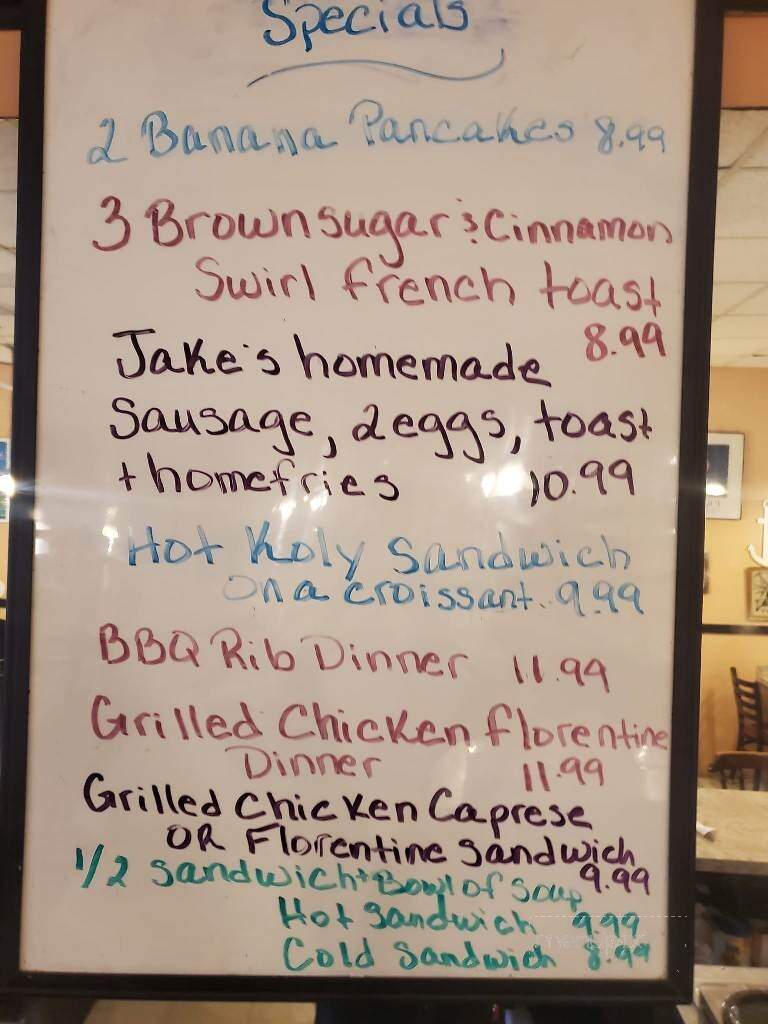 Specials
2 Banana Pancakes 8.99
3 Brownsugar & Cinnamon
Swirl french toast
8.99
Jake's homemade
Sausage, 2eggs, toast
+ homefries 10.99
Hot Koly Sandwich
on a croissant. 9.99
BBQ Rib Dinner 11.99
Grilled Chicken florentine
Dinner 11.99
Grilled Chicken Caprese
OR Florentine Sandwich
9.99
1/2 Sandwich + Bowl of Soup
Hot Sandwich 9.99
Cold Sandwich 8.99